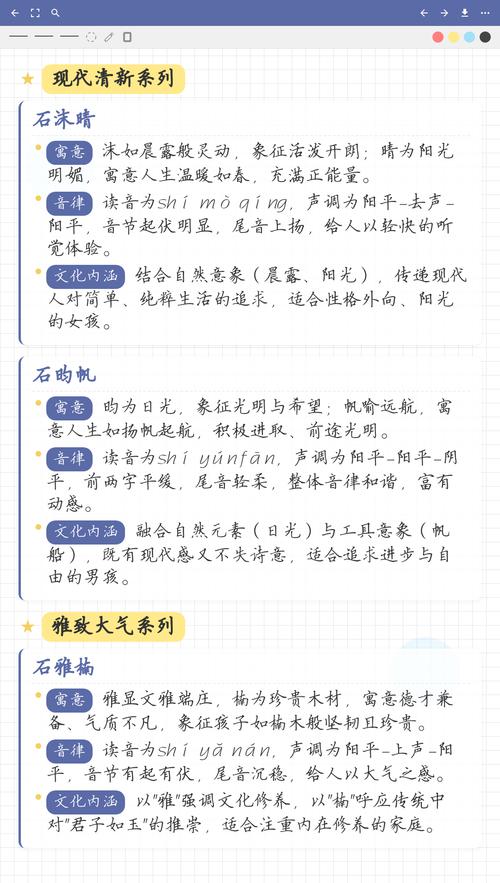 现代清新系列
石沫晴
寓意 沫如晨露般灵动，象征活泼开朗；晴为阳光
明媚，寓意人生温暖如春，充满正能量。
音律 读音为shí mò qíng，声调为阳平-去声-
阳平，音节起伏明显，尾音上扬，给人以轻快的听
觉体验。
文化内涵 结合自然意象（晨露、阳光），传递现代
人对简单、纯粹生活的追求，适合性格外向、阳光
的女孩。
石昀帆
寓意 昀为日光，象征光明与希望；帆喻远航，寓
意人生如扬帆起航，积极进取、前途光明。
音律 读音为shí yúnfān，声调为阳平-阳平-阴
平，前两字平缓，尾音轻柔，整体音律和谐，富有
动感。
文化内涵 融合自然元素（日光）与工具意象（帆
船），既有现代感又不失诗意，适合追求进步与自
由的男孩。
雅致大气系列
石雅楠
寓意 雅显文雅端庄，楠为珍贵木材，寓意德才兼
备、气质不凡，象征孩子如楠木般坚韧且珍贵。
音律 读音为shí yǎ nán，声调为阳平-上声-阳
平，音节有起有伏，尾音沉稳，给人以大气之感。
文化内涵 以"雅"强调文化修养，以"楠"呼应传统中
对"君子如玉"的推崇，适合注重内在修养的家庭。